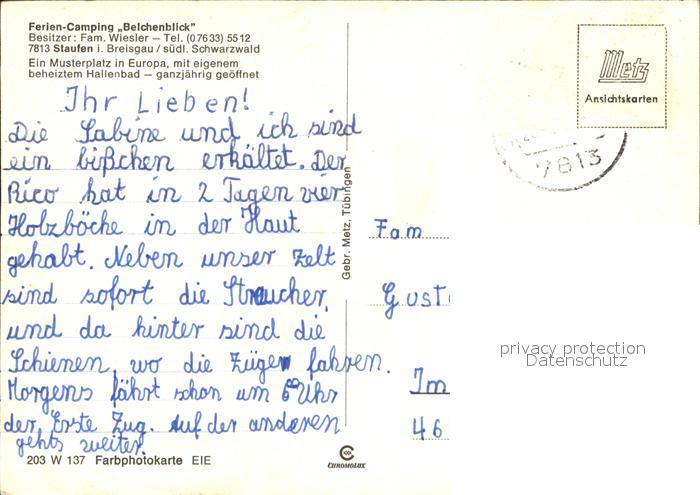 Ferien-Camping „Belchenblick"
Besitzer: Fam. Wiesler — Tel. (07633) 5512
7813 Staufen i. Breisgau / südl. Schwarzwald
Ein Musterplatz in Europa, mit eigenem
beheiztem Hallenbad — ganzjährig geöffnet
Ihr Lieben!
Die Sabine und ich sind
ein bißchen erkältet. Der
Rico hat in 2 Tagen vier
Holzböche in der Haut
gehabt. Neben unser Zelt
sind sofort die Straucher,
und da hinter sind die
Schienen, wo die Zügen fahren.
Morgens fährt schon um 6 00 Uhr
der Erste Zug. Auf der anderen
gehts weiter.
203 W 137 Farbphotokarte EIE
Gebr. Metz, Tübingen
CHROMOLUX
Metz
Ansichtskarten
7813
Fam
Gust
privacy protection
Datenschutz
Im
46